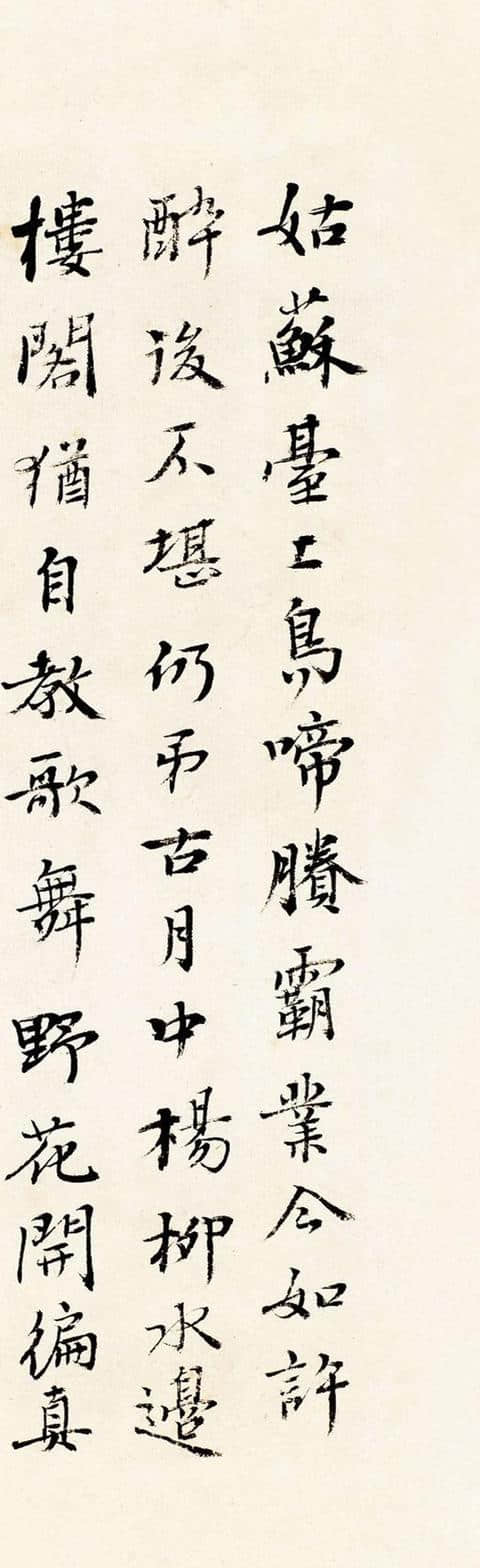 姑蘇臺上烏啼賸霸業今如許
醉後不堪仍弔古月中楊柳水邊
樓閣猶自教歌舞野花開徧真